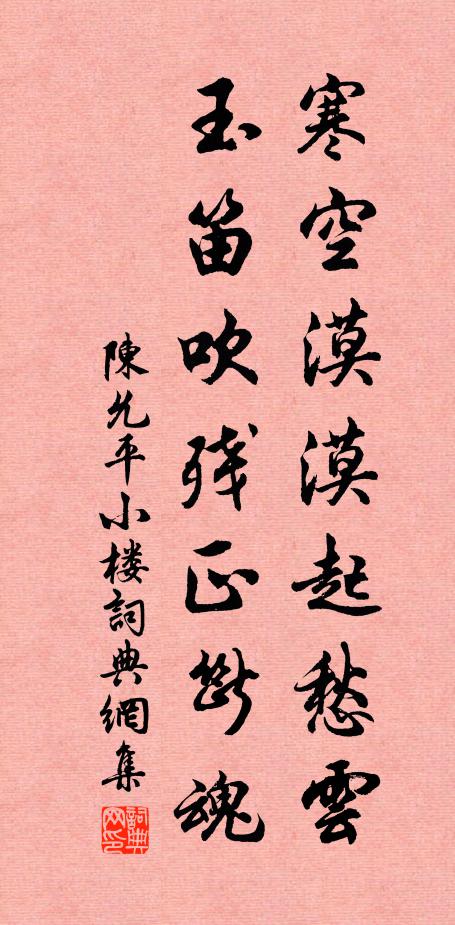 寒空漠漠起愁雲
玉笛吹残正斷魂
陳允平小楼詞典網集
詞典网印